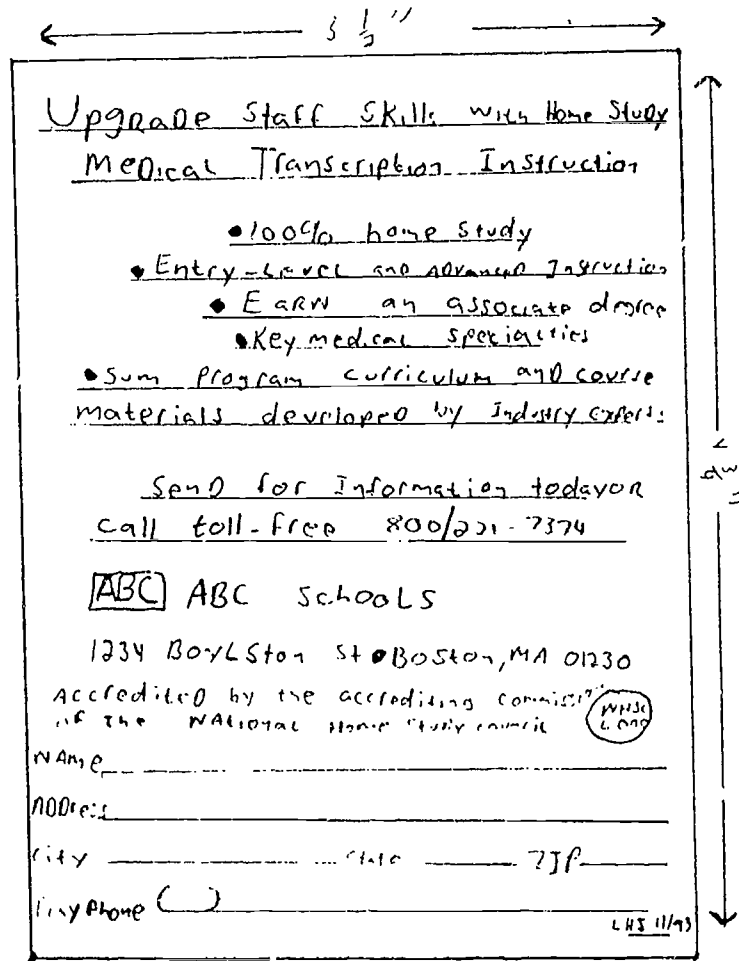 3 1/2"
Upgrade Staff Skills With Home Study
Medical Transcription Instruction
• 100% home study
• Entry-Level and Advanced Instruction
• Earn an associate degree
• Key medical specialties
• Sum program curriculum and course
materials developed by Industry experts
Send for Information today or
call toll-free 800/221-7374
ABC ABC SchooLS
1234 Boylston St • Boston, MA 01230
Accredited by the accrediting
of the National Home Study council
NHSC
Name
Address
City State ZIP
Phone ( )
LHS 11/93